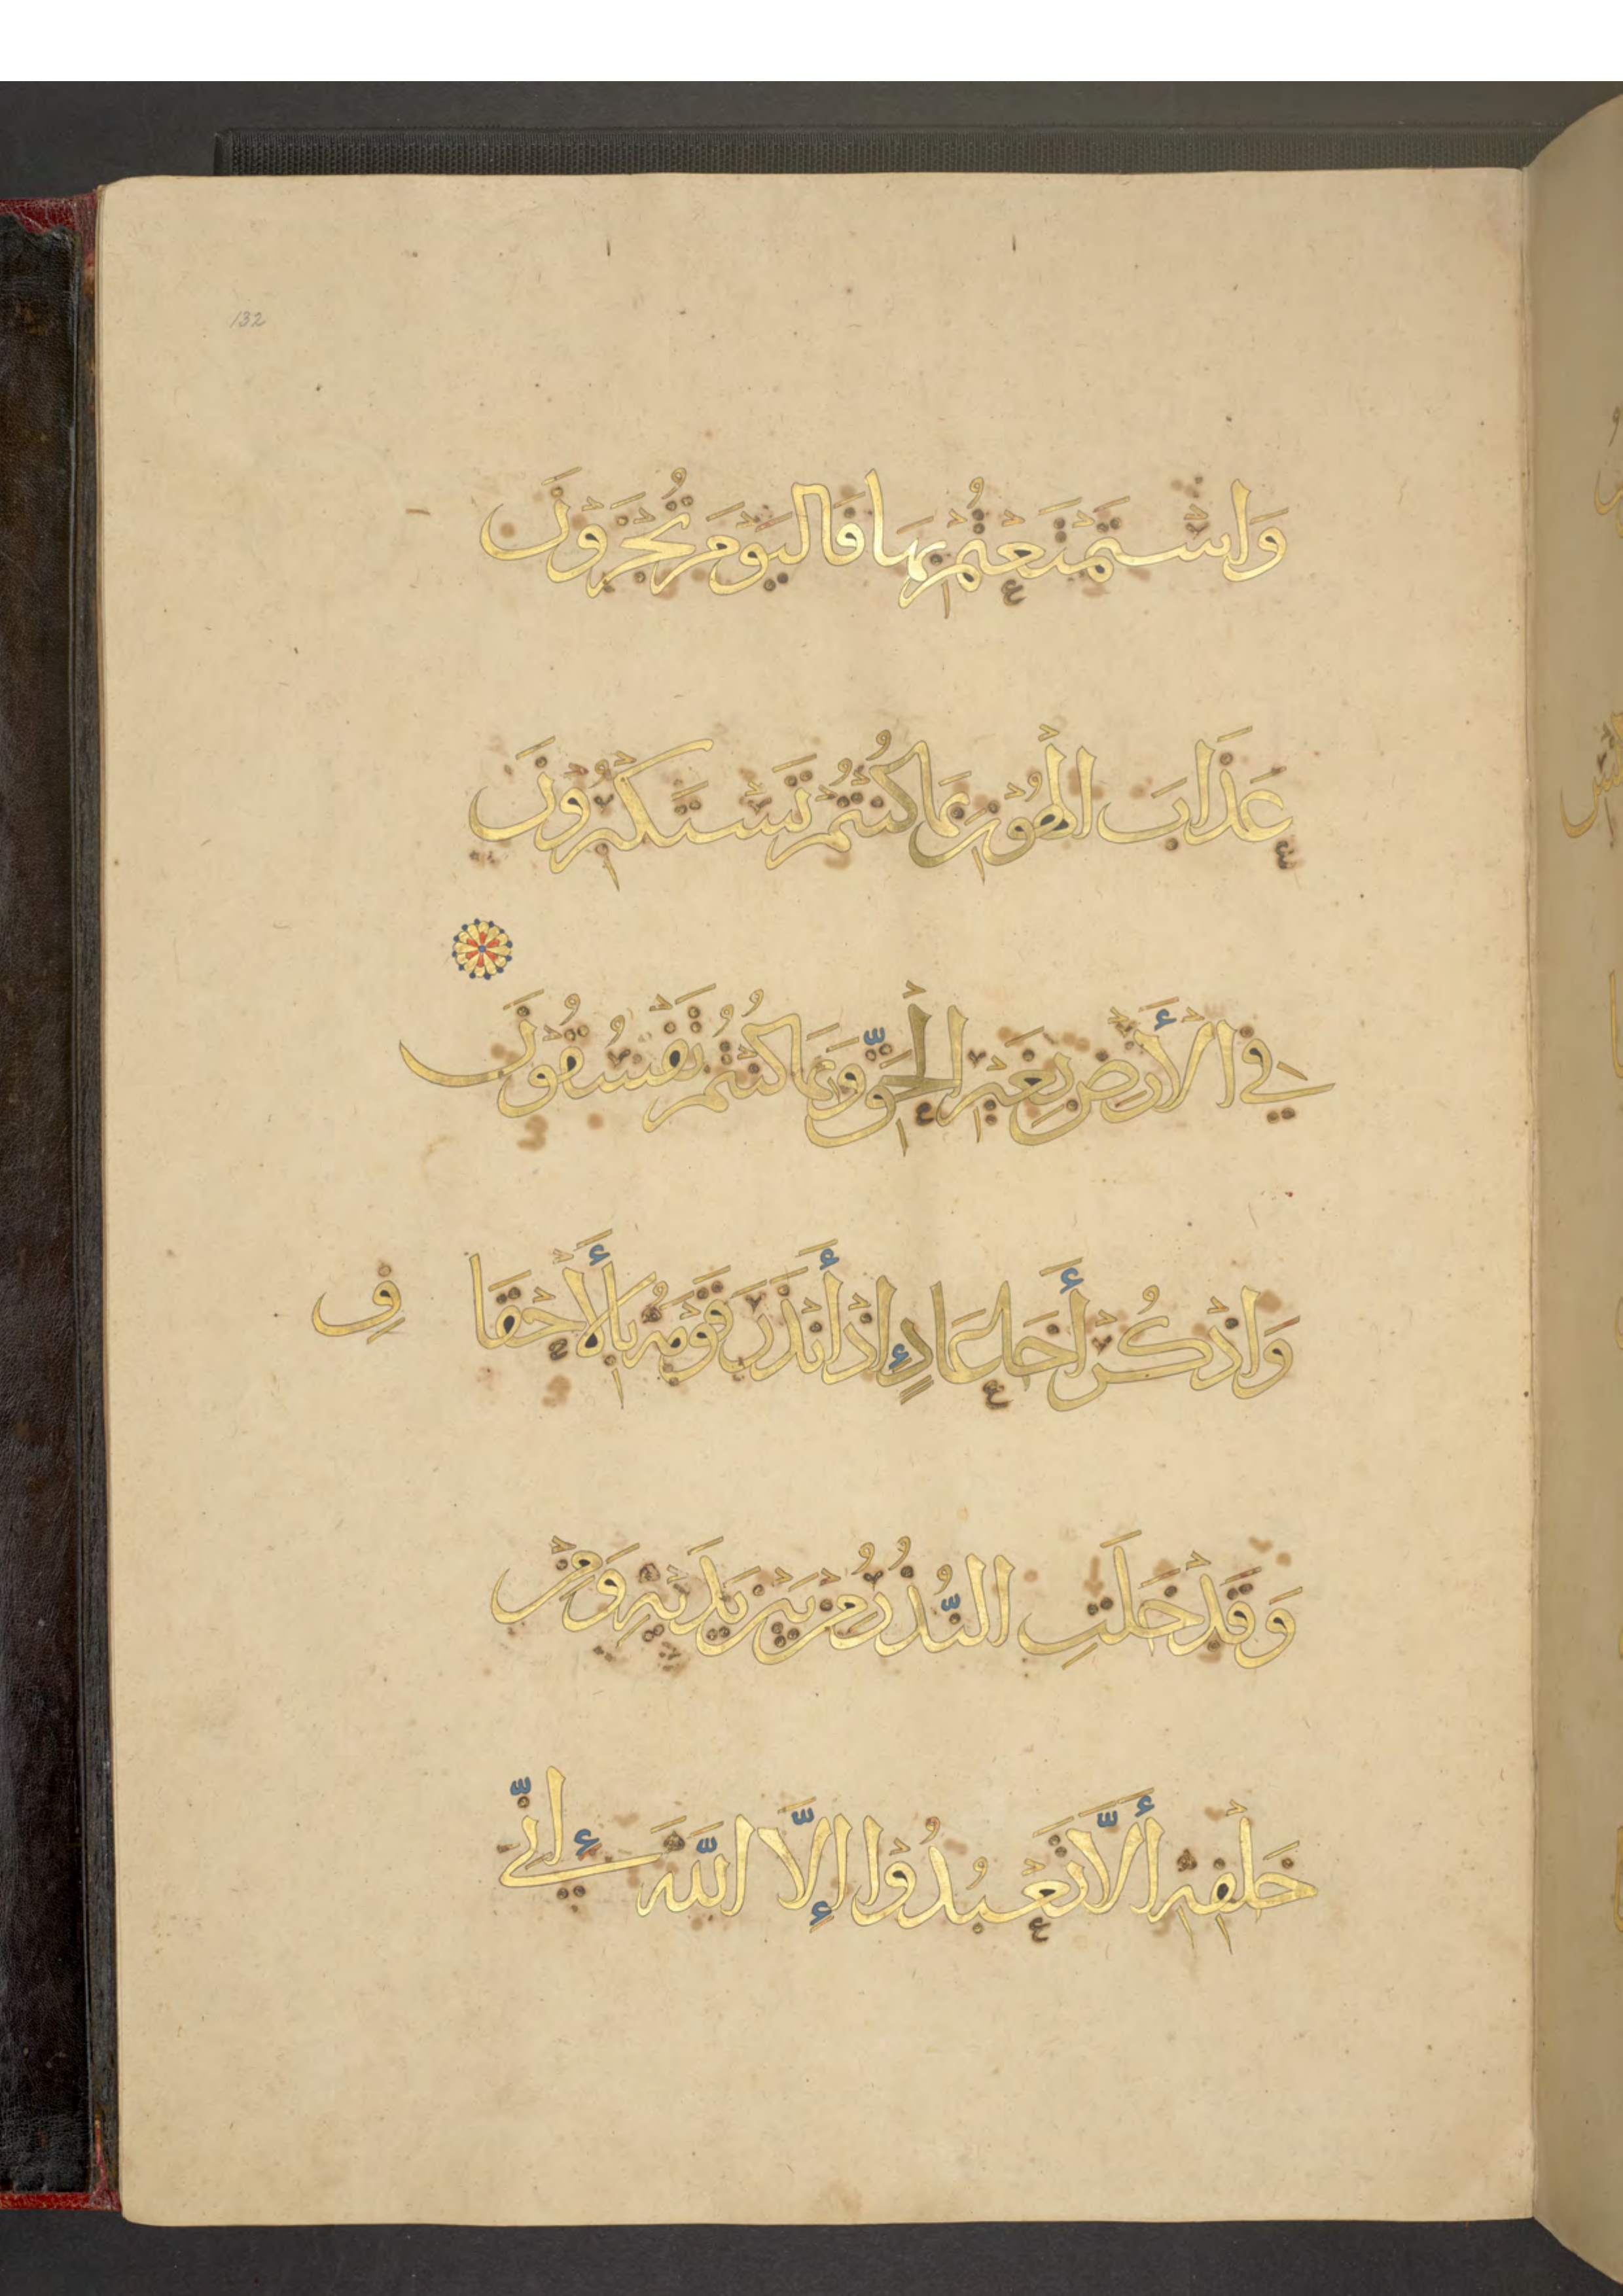 132
وَاسْتَمْتَعْتُمْ بِهَا فَالْيَوْمَ تُجْزَوْنَ
عَذَابَ الْهُوْنِ بِمَا كُنْتُمْ تَسْتَكْبِرُوْنَ
فِي الْأَرْضِ بِغَيْرِ الْحَقِّ وَبِمَا كُنْتُمْ تَفْسُقُوْنَ
وَاذْكُرْ أَخَا عَادٍ إِذْ أَنْذَرَ قَوْمَهُ بِالْأَحْقَافِ
وَقَدْ خَلَتِ النُّذُرُ مِنْ بَيْنِ يَدَيْهِ وَمِنْ
خَلْفِهِ أَلَّا تَعْبُدُوْا إِلَّا اللَّهَ إِنِّي